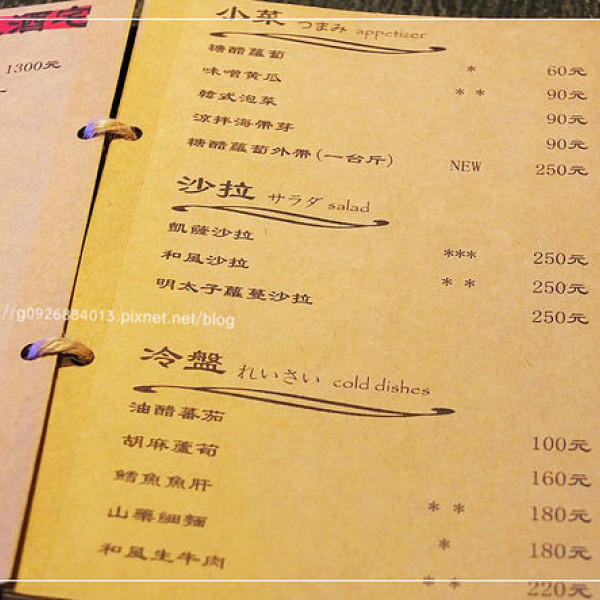 酒宅
1300元
小菜 つまみ appetizer
糖醋蘿蔔 * 60元
味噌黃瓜 * * 90元
韓式泡菜 90元
涼拌海帶芽 90元
糖醋蘿蔔外帶(一台斤) NEW 250元
沙拉 サラダ salad
凱薩沙拉 *** 250元
和風沙拉 * * 250元
明太子蘿蔓沙拉 250元
//g0926884013.pixnet.net/blog
冷盤 れいさい cold dishes
油醋蕃茄 100元
胡麻蘆筍 160元
鱈魚魚肝 * * 180元
山藥細麵 * 180元
和風生牛肉 * * 220元